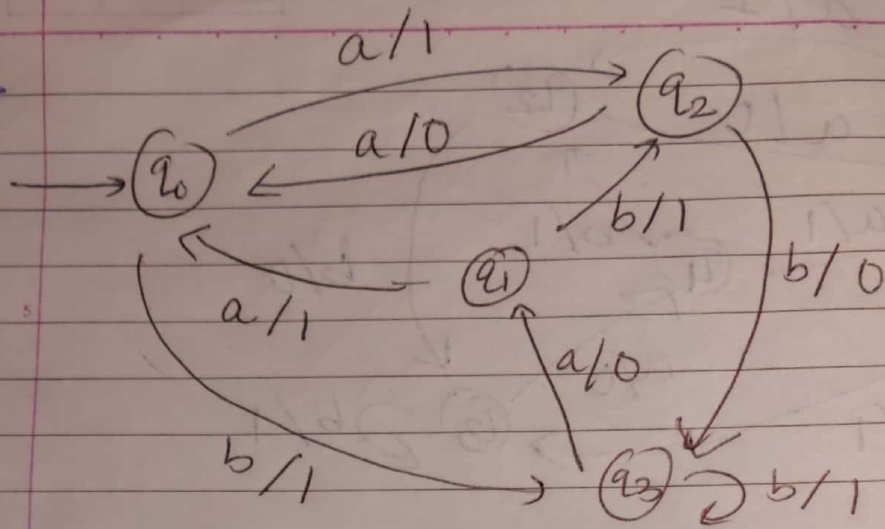 a/1
q2
a/0
q0
b/1
q1
b/0
a/1
a/0
b/1
q3
b/1